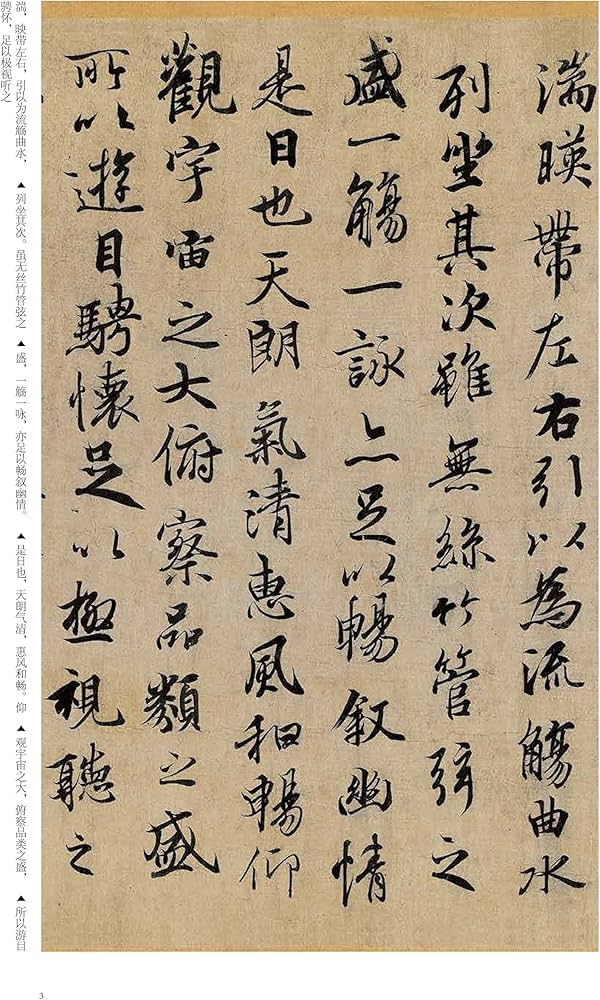 湍暎帶左右引以為流觴曲水
列坐其次雖無絲竹管弦之
盛一觴一詠亦足以暢叙幽情
是日也天朗氣清惠風和暢仰
觀宇宙之大俯察品類之盛
所以遊目騁懷足以極視聽之
湍，映带左右，引以为流觞曲水， ▲ 列坐其次。虽无丝竹管弦之 ▲ 盛，一觞一咏，亦足以畅叙幽情。 ▲ 是日也，天朗气清，惠风和畅。仰 ▲ 观宇宙之大，俯察品类之盛， ▲ 所以游目
骋怀，足以极视听之
3